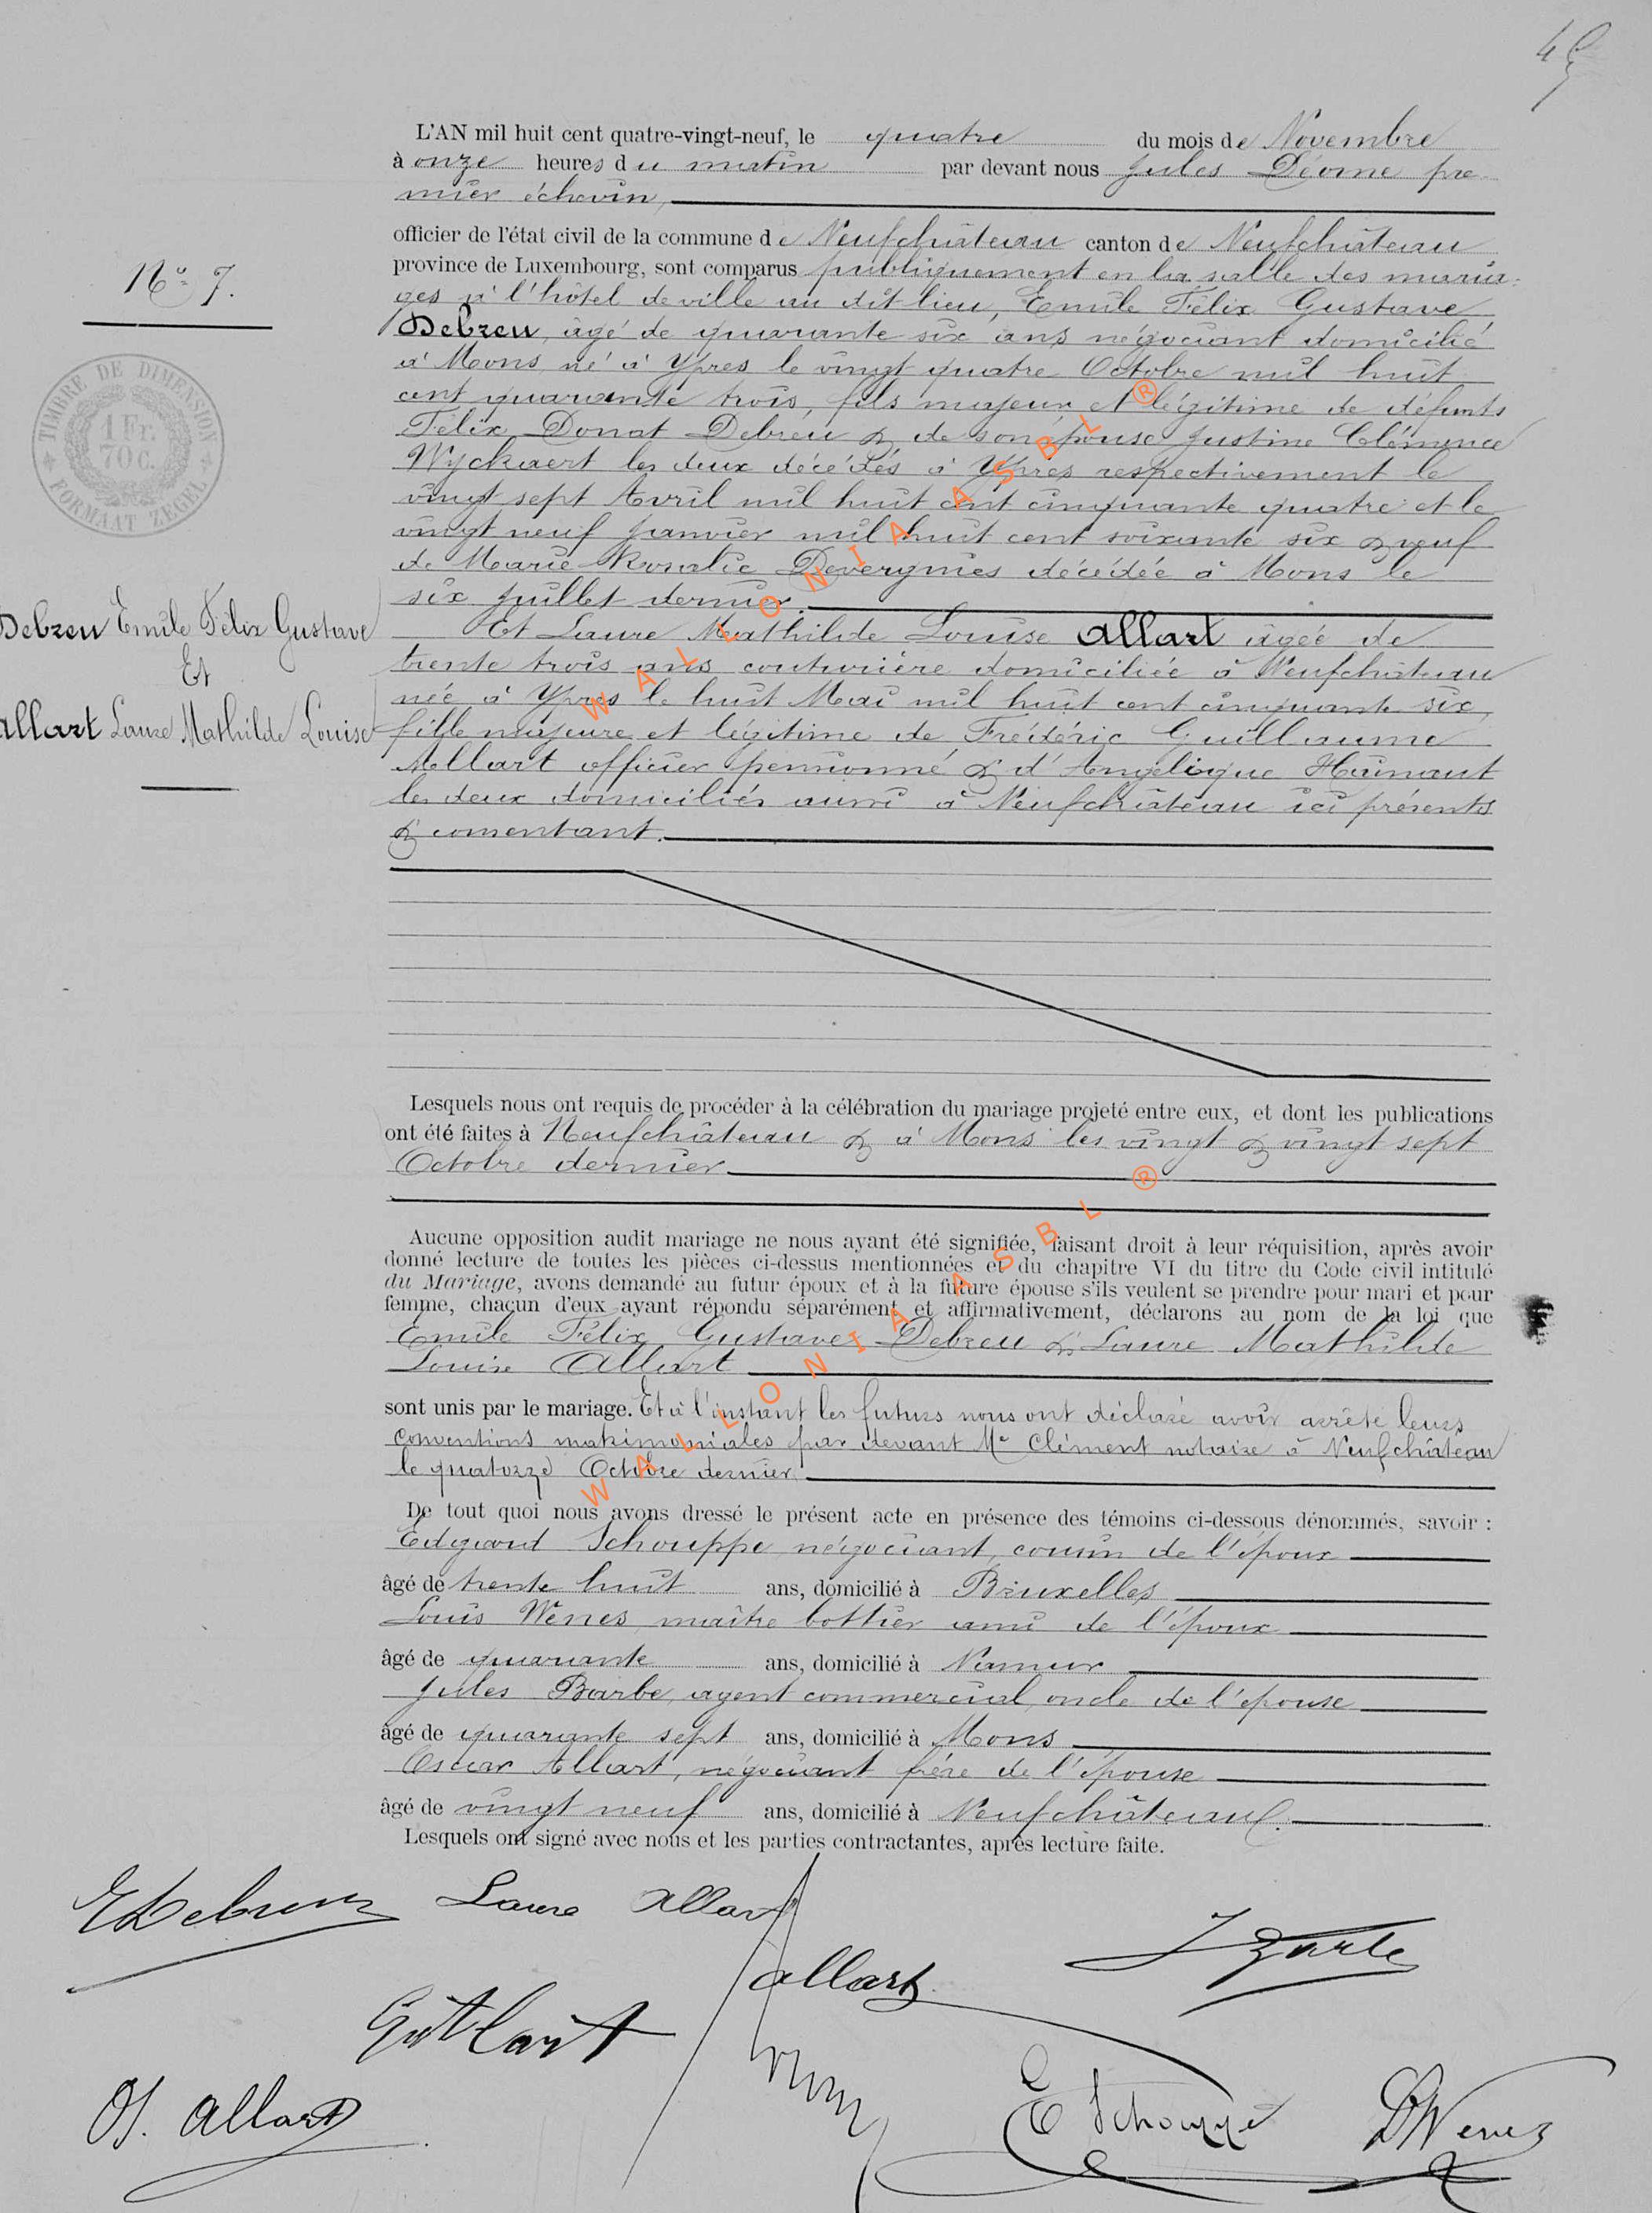 L'AN mil huit cent quatre-vingt-neuf, le quatre du mois de Novembre
à onze heures du matin par devant nous Jules Déome pre-
mier échevin,
officier de l'état civil de la commune de Neufchâteau canton de Neufchâteau
province de Luxembourg, sont comparus publiquement en la salle des maria-
ges à l'hôtel de ville au dit lieu, Emile Félix Gustave
Debreu, âgé de quarante six ans négociant domicilié
à Mons né à Ypres le vingt quatre Octobre mil huit
cent quarante trois, fils majeur et légitime de défunts
Félix Donat Debreu & de son épouse Justine Clémence
Wyckaert les deux décédés à Ypres respectivement le
vingt sept Avril mil huit cent cinquante quatre et le
vingt neuf Janvier mil huit cent soixante six & veuf
de Marie Rosalie Devergnies décédée à Mons le
six Juillet dernier.
Et Laure Mathilde Louise Allart âgée de
trente trois ans couturière domiciliée à Neufchâteau
née à Ypres le huit Mai mil huit cent cinquante six,
fille majeure et légitime de Frédéric Guillaume
Allart officier pensionné & d'Angélique Hainaut
les deux domiciliés aussi à Neufchâteau ici présents
& consentant.
No. 7.
TIMBRE DE DIMENSION
1 Fr.
70 C.
FORMAAT ZEGEL
Debreu Emile Félix Gustave
Et
Allart Laure Mathilde Louise
Lesquels nous ont requis de procéder à la célébration du mariage projeté entre eux, et dont les publications
ont été faites à Neufchâteau & à Mons les vingt & vingt sept
Octobre dernier
Aucune opposition audit mariage ne nous ayant été signifiée, faisant droit à leur réquisition, après avoir
donné lecture de toutes les pièces ci-dessus mentionnées et du chapitre VI du titre du Code civil intitulé
du Mariage, avons demandé au futur époux et à la future épouse s'ils veulent se prendre pour mari et pour
femme, chacun d'eux ayant répondu séparément et affirmativement, déclarons au nom de la loi que
Emile Félix Gustave Debreu & Laure Mathilde
Louise Allart
sont unis par le mariage. Et à l'instant les futurs nous ont déclaré avoir arrêté leurs
conventions matrimoniales par devant Me Clément notaire à Neufchâteau
le quatorze Octobre dernier.
De tout quoi nous avons dressé le présent acte en présence des témoins ci-dessous dénommés, savoir :
Edgard Schouppe négociant, cousin de l'époux
âgé de trente huit ans, domicilié à Bruxelles
Louis Wenes maître bottier ami de l'époux
âgé de quarante ans, domicilié à Namur
Jules Barbe, agent commercial, oncle de l'épouse
âgé de quarante sept ans, domicilié à Mons
Oscar Allart, négociant frère de l'épouse
âgé de vingt neuf ans, domicilié à Neufchâteau.
Lesquels ont signé avec nous et les parties contractantes, après lecture faite.
EDebreu Laure Allart
Allart
Os. Allart E Schouppe LWenes
WALLONIA ASBL ®
WALLONIA ASBL ®